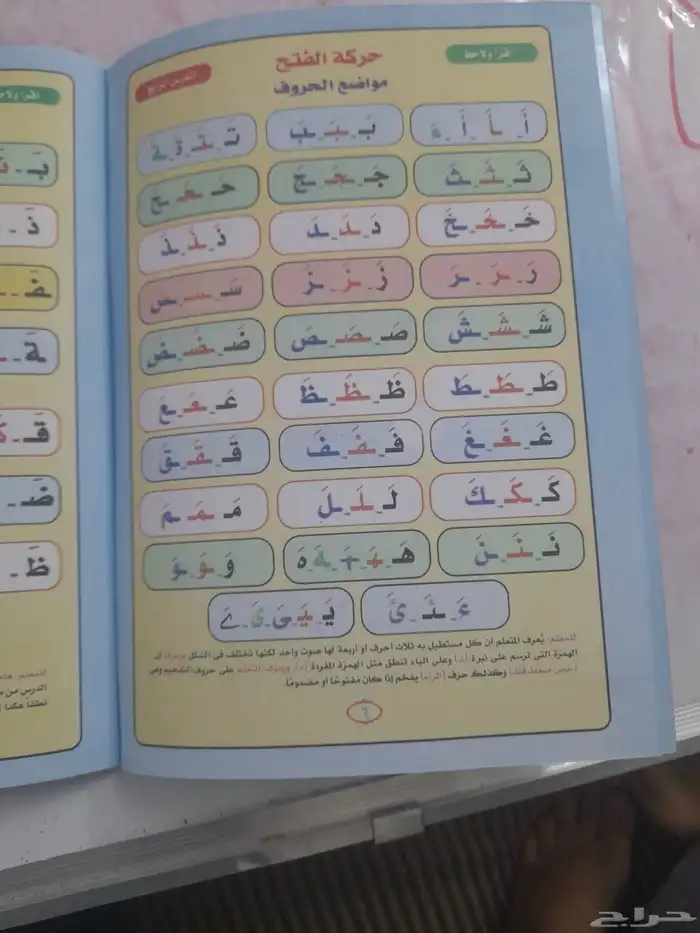 اقرأ ولاحظ
حركة الفتح
الدرس الرابع
مواضع الحروف
أَ ـأَ أَ ءَ
بَـ ـبَـ ـبَ
تَـ ـتَـ ةَ ـةَ
ثَـ ـثَـ ـثَ
جَـ ـجَـ ـجَ
حَـ ـحَـ ـحَ
خَـ ـخَـ ـخَ
دَ ـدَ ـدَ
ذَ ـذَ ـذَ
رَ ـرَ ـرَ
زَ ـزَ ـزَ
سَـ ـسَـ ـسَ
شَـ ـشَـ ـشَ
صَـ ـصَـ ـصَ
ضَـ ـضَـ ـضَ
طَـ ـطَـ ـطَ
ظَـ ـظَـ ـظَ
عَـ ـعَـ ـعَ
غَـ ـغَـ ـغَ
فَـ ـفَـ ـفَ
قَـ ـقَـ ـقَ
كَـ ـكَـ ـكَ
لَـ ـلَـ ـلَ
مَـ ـمَـ ـمَ
نَـ ـنَـ ـنَ
هَـ ـهَـ ـهَ هَ
وَ ـوَ ـوَ
ءَ ـئَـ ئَ
يَـ ـيَـ ـيَ يَ
للمعلم: يُعرف المتعلم أن كل مستطيل به ثلاث أحرف أو أربعة لها صوت واحد لكنها تختلف في الشكل ويعرف أن
الهمزة التي ترسم على نبرة (ئـ) وعلى الياء تنطق مثل الهمزة المفردة (ء). ويعرف المتعلم على حروف التفخيم وهي
(خص ضغط قظ) وكذلك حرف (الراء) يفخم إذا كان مفتوحًا أو مضمومًا.
٦
حراج